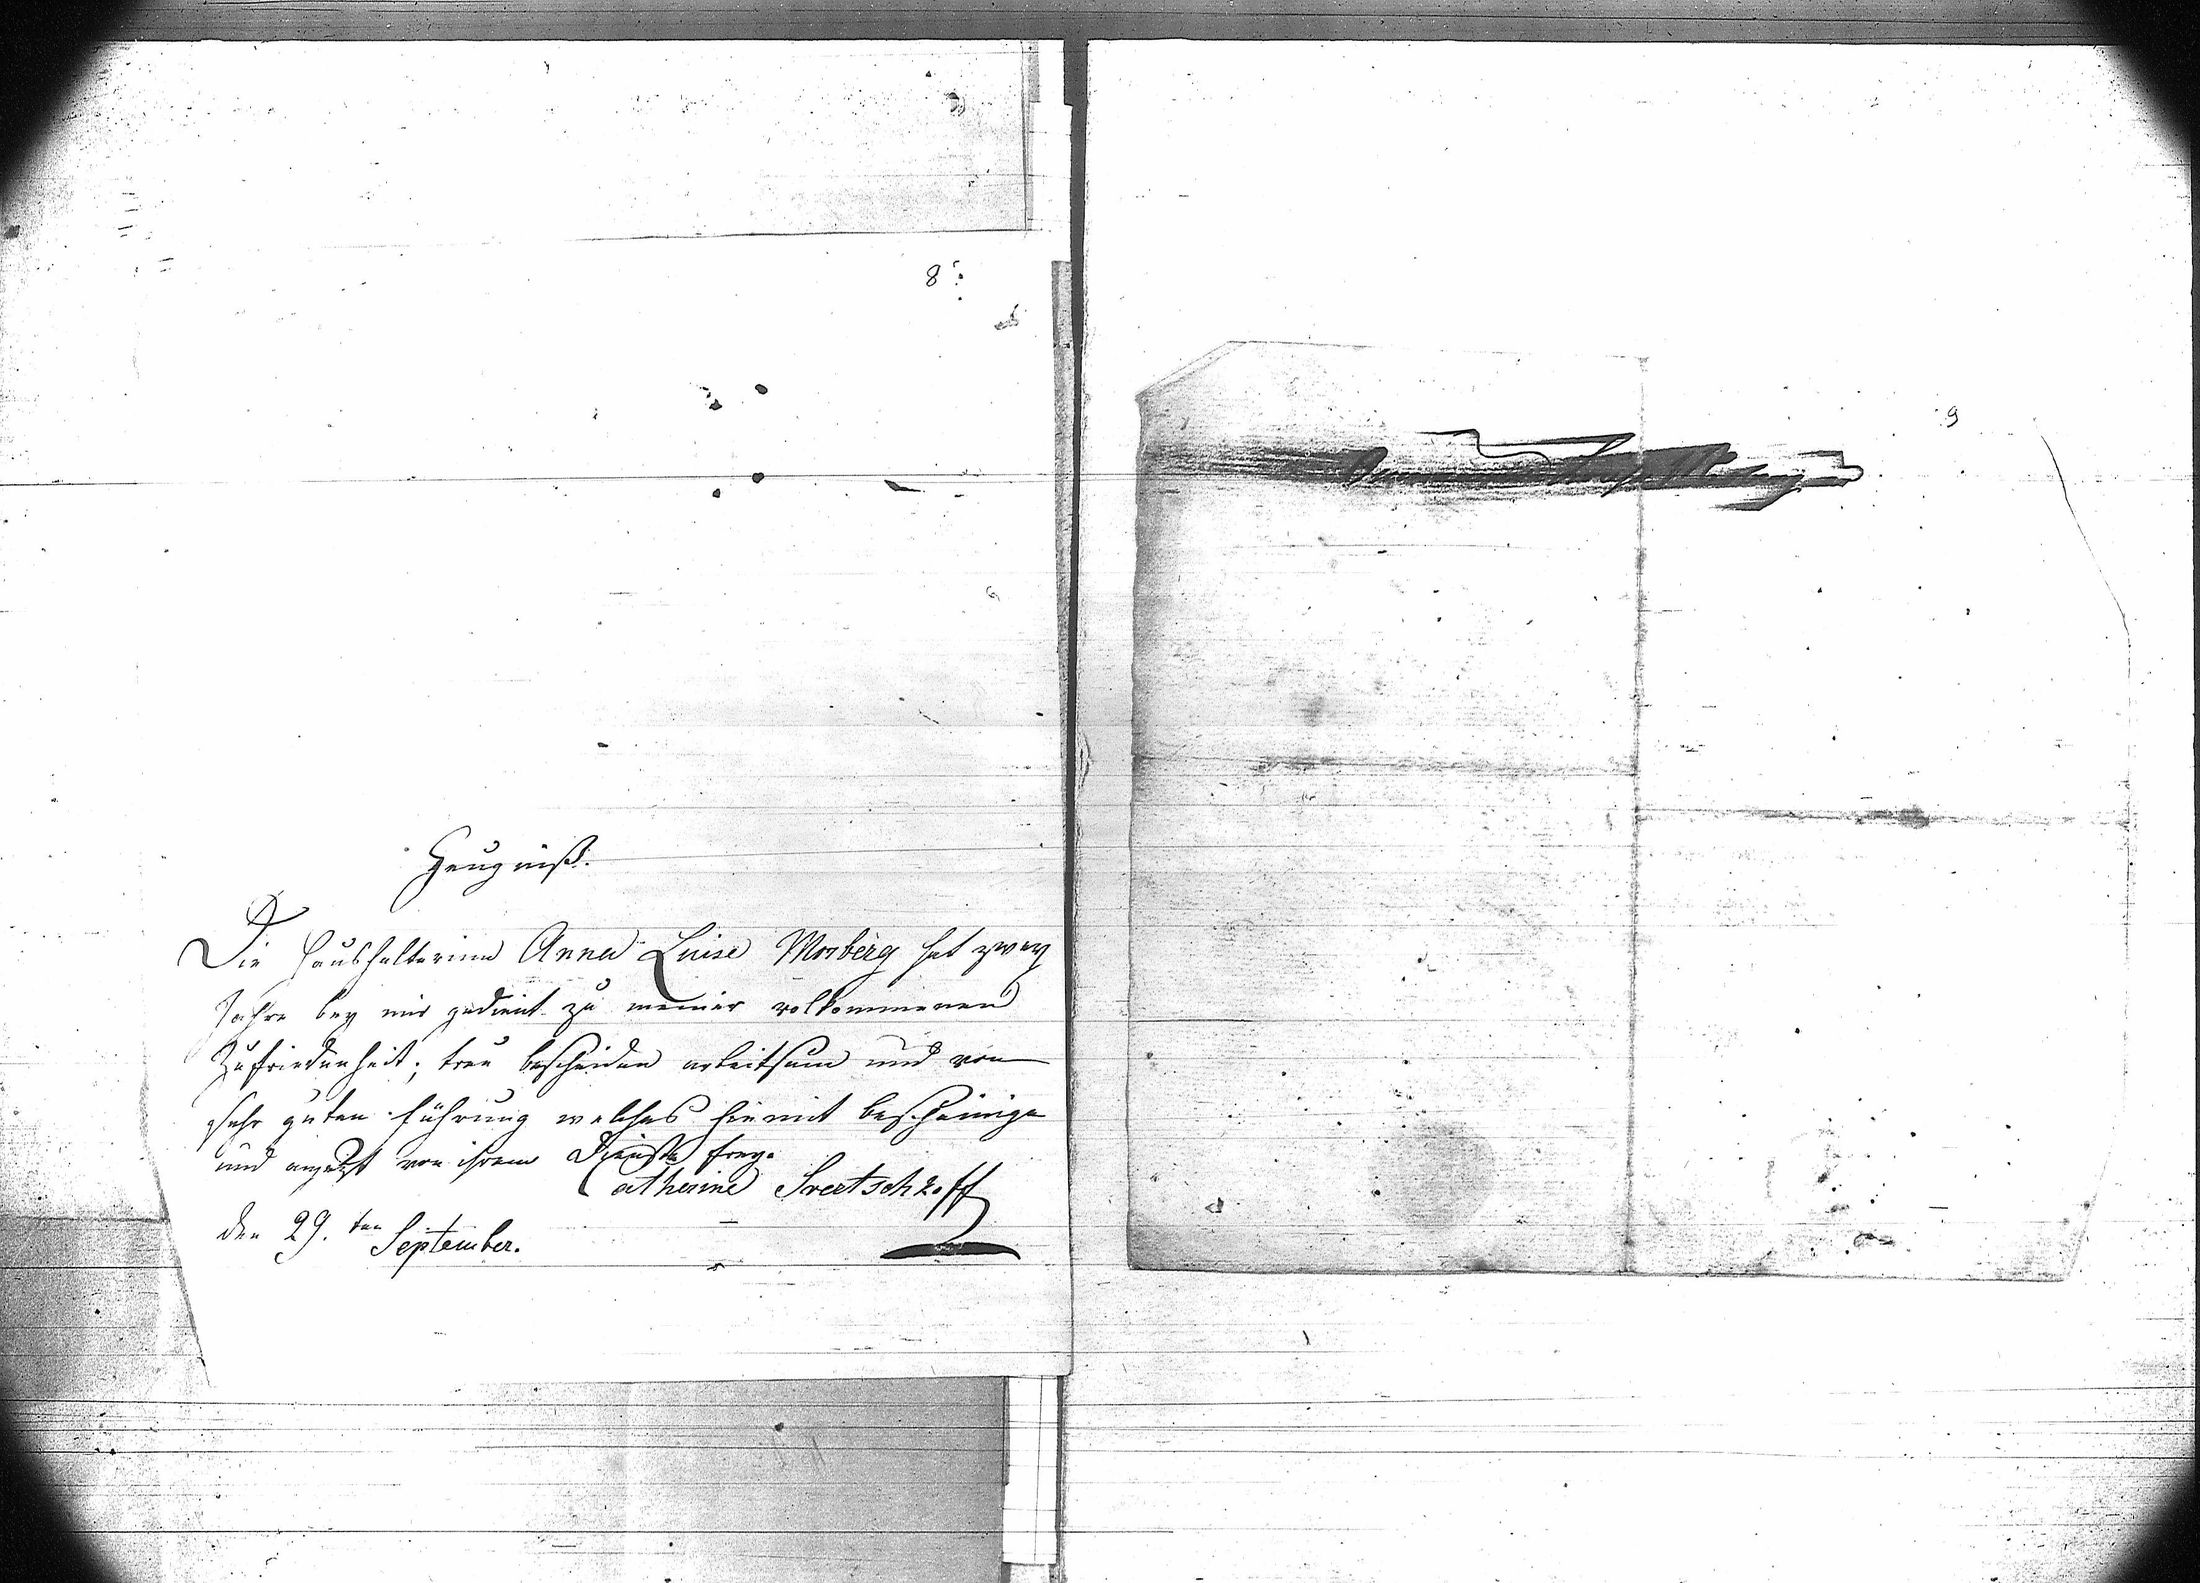 8
Zeugniß.
Die Haushalterinn Anna Luise Morberg hat zwey
Jahre bey mir gedient zu meiner volkommenen
Zufriedenheit; treu bescheiden arbeitsam und von
sehr guten führung welches hiemit bescheinige
und von ihrem Dienste frey.
Catherine
den 29.ten September.
9